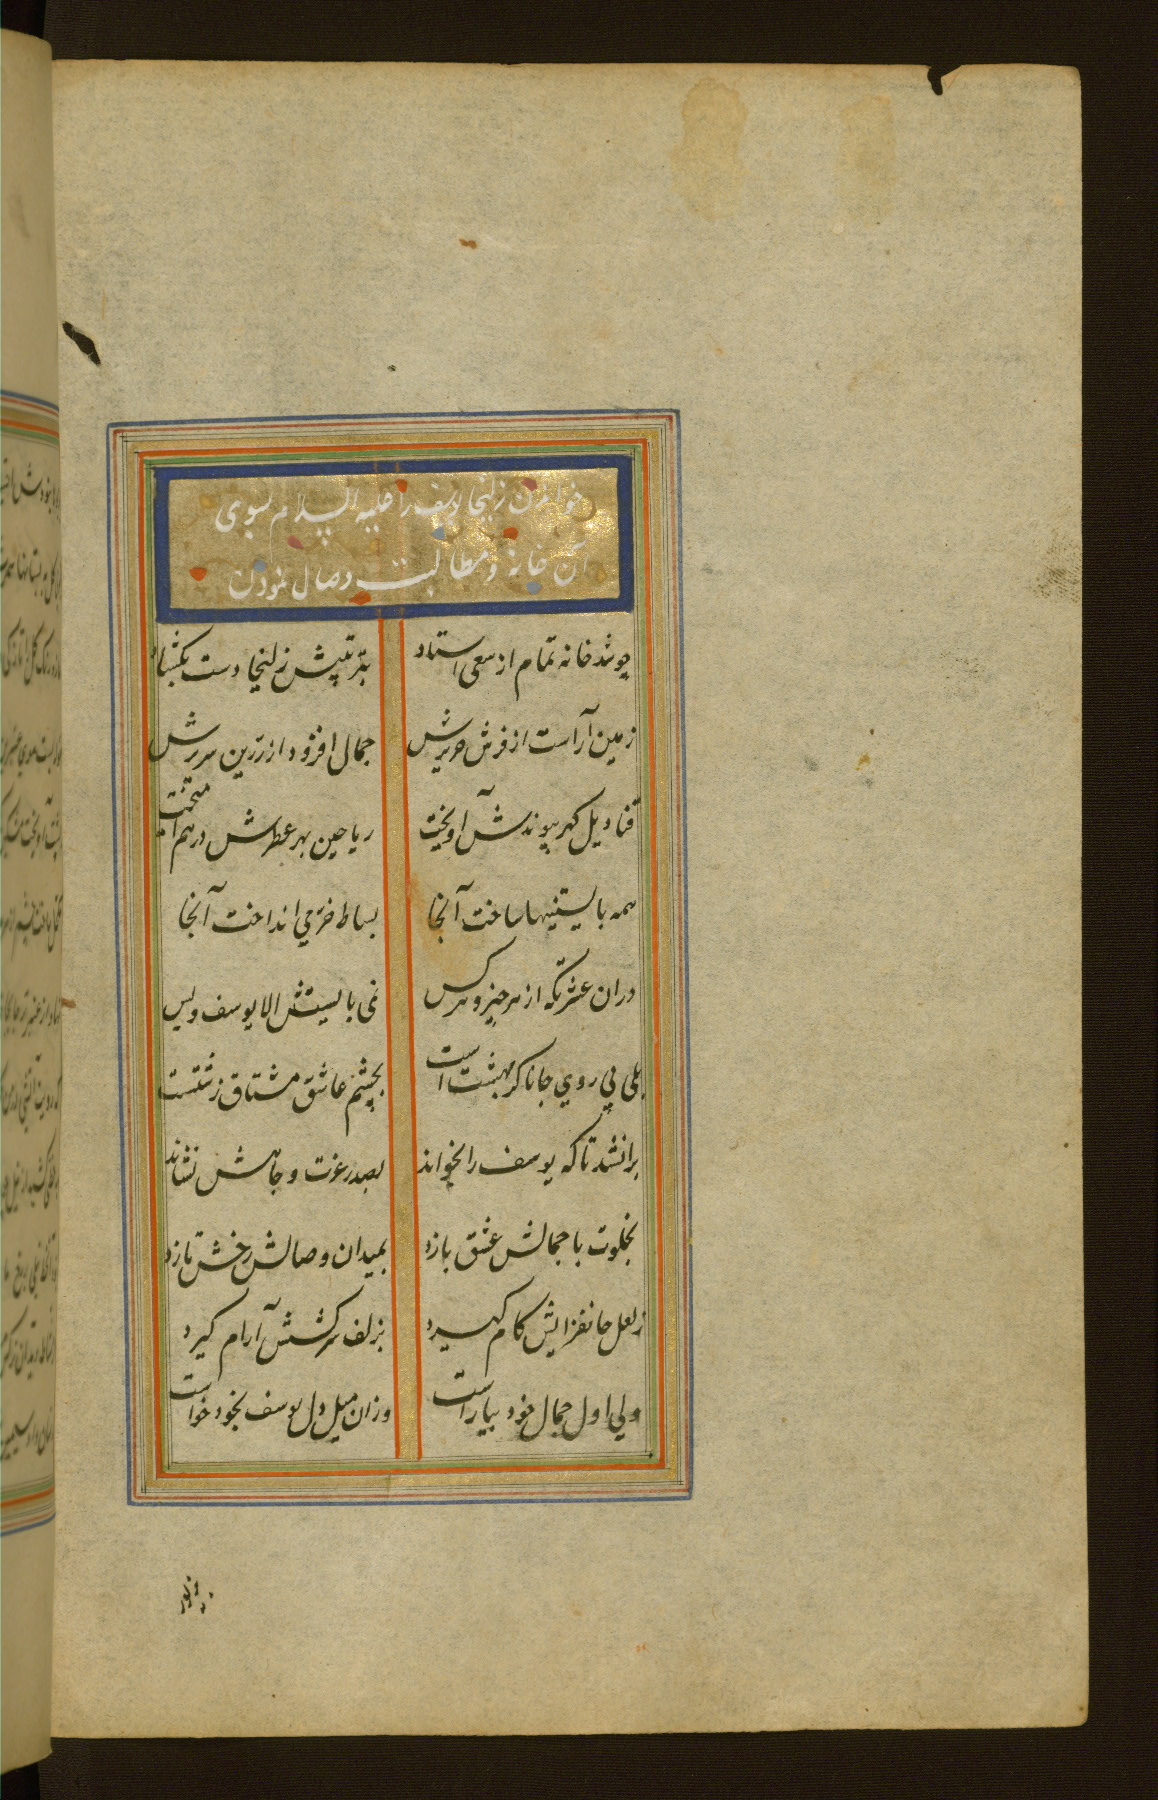 خواندن زلیخا یوسف را علیه السلام بسوی
آن خانه و مطالبت وصال نمودن
چو شد خانه تمام از سعی استاد
بتزیینش زلیخا دست بگشاد
زمین آراست از فرش حریرش
جمال افزود از زرین سریرش
قنادیل گهر پیوندش آویخت
ریاحین بهر عطرش درهم آمیخت
همه بایستنیها ساخت آنجا
بساط خرمی انداخت آنجا
دران عشرتکه از هر چیز و هر کس
نمی بایستش الا یوسف و بس
بلی بی روی جانان گر بهشت است
بچشم عاشق مشتاق زشتست
بران شد تا که یوسف را بخواند
بصدر عزت و جاهش نشاند
بخلوت با جمالش عشق بازد
بمیدان وصالش رخش تازد
ز لعل جانفزایش کام گیرد
بزلف سرکشش آرام گیرد
ولی اول جمال خود بیاراست
وزان میل دل یوسف بخود خواست